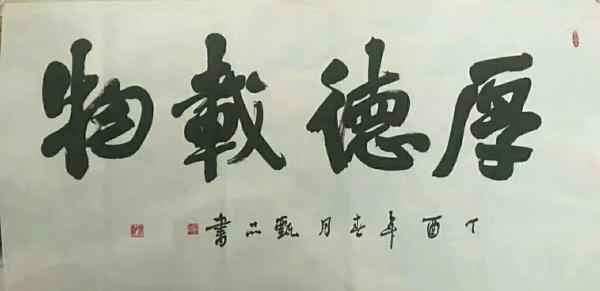 厚德載物
丁酉年春月甄品書